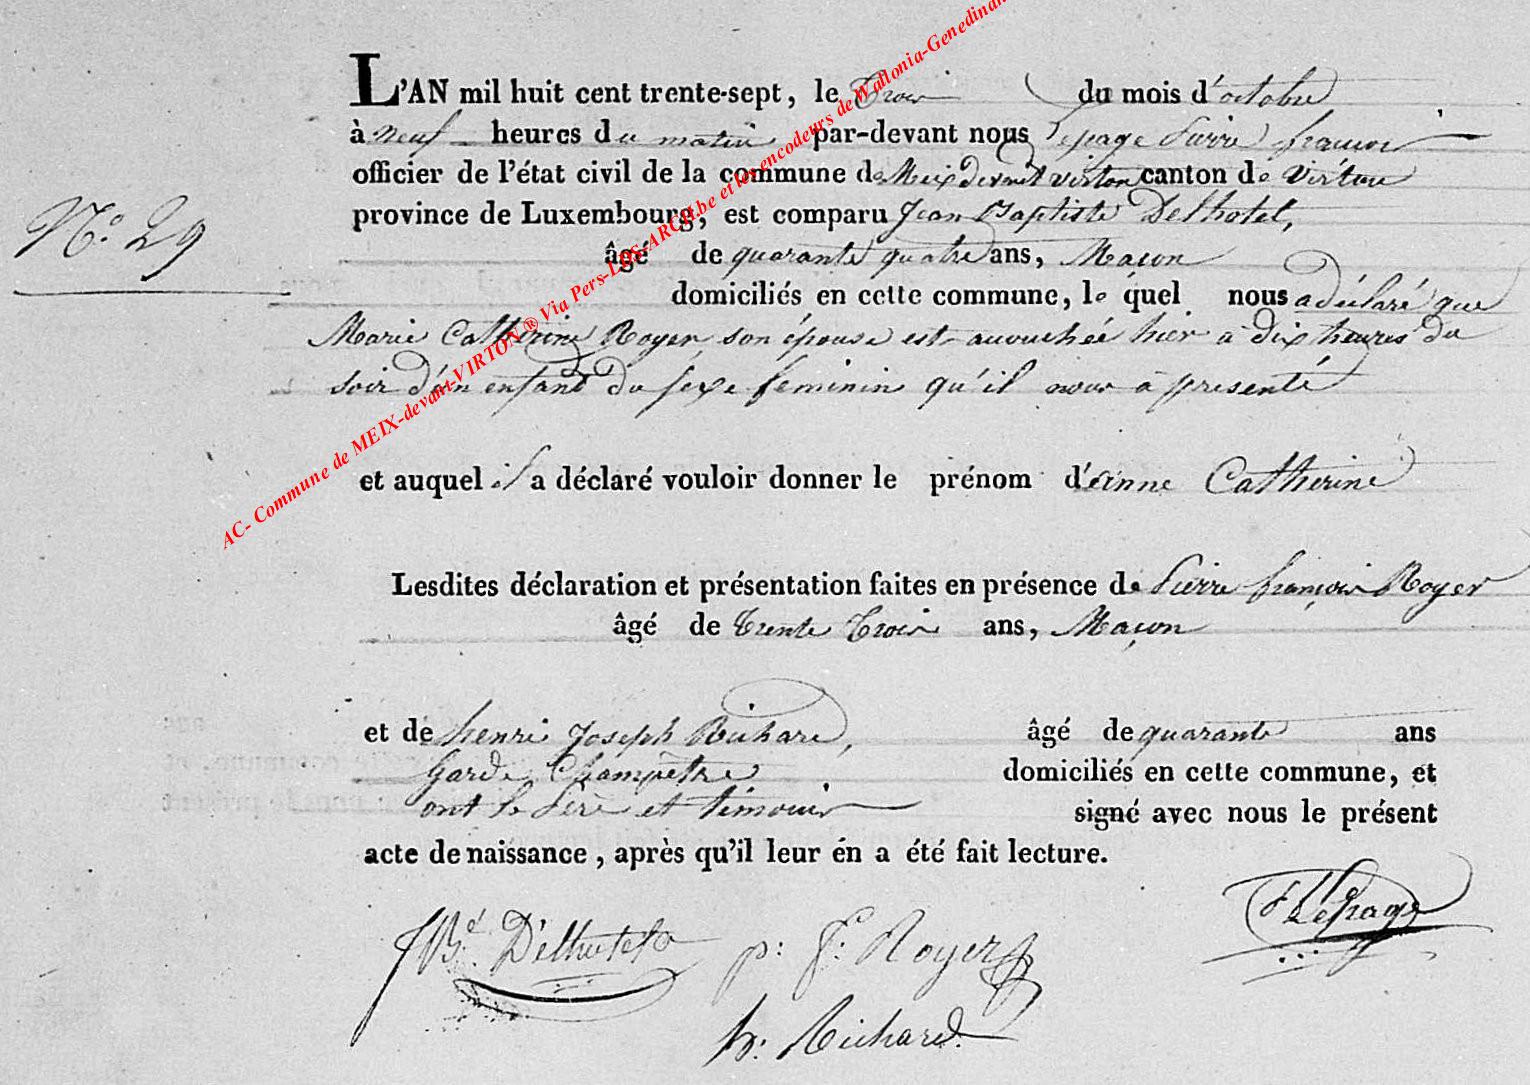 L'AN mil huit cent trente-sept, le Trois du mois d'octobre
à neuf heures du matin par-devant nous Lepage Pierre françois
officier de l'état civil de la commune de Meix devant virton canton de Virton
province de Luxembourg, est comparu Jean Baptiste Delhotel,
N.o 29
âgé de quarante quatre ans, Maçon
domiciliés en cette commune, le quel nous a déclaré que
Marie Catherine Royer son épouse est accouchée hier à dix heures du
soir d'un enfant du sexe feminin qu'il nous a presenté
et auquel il a déclaré vouloir donner le prénom d'anne Catherine
Lesdites déclaration et présentation faites en présence de Pierre françois Royer
âgé de Trente Trois ans, Maçon
et de henri Joseph Richard, âgé de quarante ans
Garde Champêtre domiciliés en cette commune, et
ont le Père et témoins signé avec nous le présent
acte de naissance, après qu'il leur én a été fait lecture.
JBte Delhotel p: f: Royer f Lepage
h: Richard.
AC- Commune de MEIX-devant-VIRTON® Via Pers-LDS-ARCH.be et les encodeurs de Wallonia-Genedinan